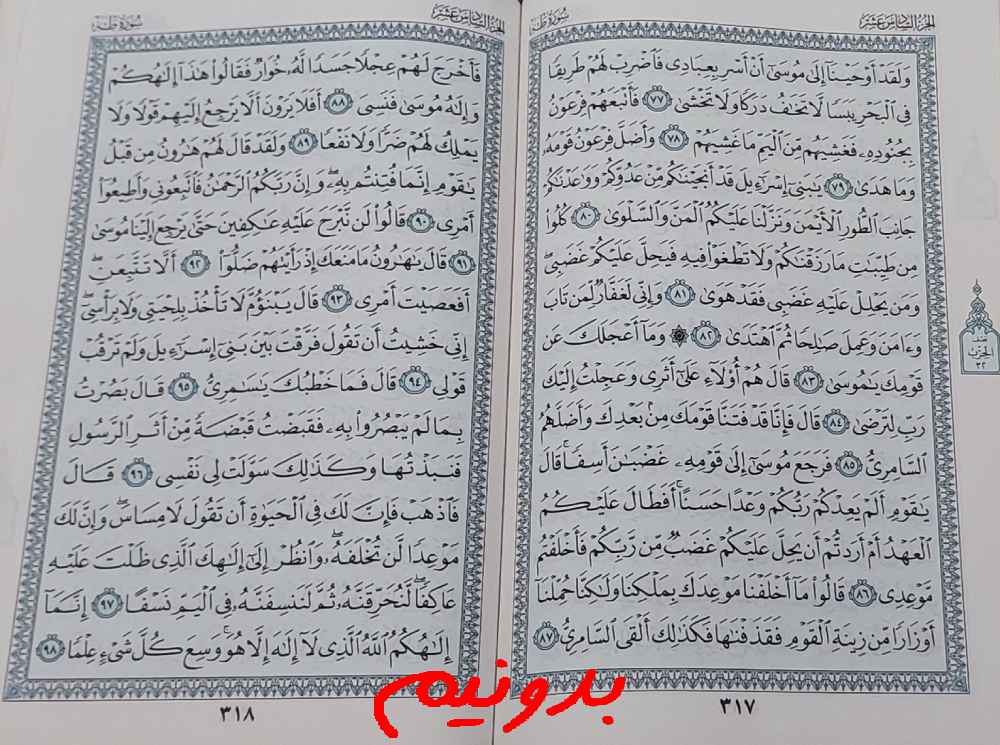 الجزء السادس عشر
سورة طه
وَلَقَدْ أَوْحَيْنَا إِلَىٰ مُوسَىٰ أَنْ أَسْرِ بِعِبَادِى فَٱضْرِبْ لَهُمْ طَرِيقًا
فِى ٱلْبَحْرِ يَبَسًا لَّا تَخَٰفُ دَرَكًا وَلَا تَخْشَىٰ ٧٧ فَأَتْبَعَهُمْ فِرْعَوْنُ
بِجُنُودِهِۦ فَغَشِيَهُم مِّنَ ٱلْيَمِّ مَا غَشِيَهُمْ ٧٨ وَأَضَلَّ فِرْعَوْنُ قَوْمَهُۥ
وَمَا هَدَىٰ ٧٩ يَٰبَنِىٓ إِسْرَٰٓءِيلَ قَدْ أَنجَيْنَٰكُم مِّنْ عَدُوِّكُمْ وَوَٰعَدْنَٰكُمْ
جَانِبَ ٱلطُّورِ ٱلْأَيْمَنَ وَنَزَّلْنَا عَلَيْكُمُ ٱلْمَنَّ وَٱلسَّلْوَىٰ ٨٠ كُلُوا۟
مِن طَيِّبَٰتِ مَا رَزَقْنَٰكُمْ وَلَا تَطْغَوْا۟ فِيهِ فَيَحِلَّ عَلَيْكُمْ غَضَبِى
وَمَن يَحْلِلْ عَلَيْهِ غَضَبِى فَقَدْ هَوَىٰ ٨١ وَإِنِّى لَغَفَّارٌ لِّمَن تَابَ
وَءَامَنَ وَعَمِلَ صَٰلِحًا ثُمَّ ٱهْتَدَىٰ ٨٢ ۞ وَمَآ أَعْجَلَكَ عَن
قَوْمِكَ يَٰمُوسَىٰ ٨٣ قَالَ هُمْ أُو۟لَآءِ عَلَىٰٓ أَثَرِى وَعَجِلْتُ إِلَيْكَ
رَبِّ لِتَرْضَىٰ ٨٤ قَالَ فَإِنَّا قَدْ فَتَنَّا قَوْمَكَ مِنۢ بَعْدِكَ وَأَضَلَّهُمُ
ٱلسَّامِرِىُّ ٨٥ فَرَجَعَ مُوسَىٰٓ إِلَىٰ قَوْمِهِۦ غَضْبَٰنَ أَسِفًا ۚ قَالَ
يَٰقَوْمِ أَلَمْ يَعِدْكُمْ رَبُّكُمْ وَعْدًا حَسَنًا ۚ أَفَطَالَ عَلَيْكُمُ
ٱلْعَهْدُ أَمْ أَرَدتُّمْ أَن يَحِلَّ عَلَيْكُمْ غَضَبٌ مِّن رَّبِّكُمْ فَأَخْلَفْتُم
مَّوْعِدِى ٨٦ قَالُوا۟ مَآ أَخْلَفْنَا مَوْعِدَكَ بِمَلْكِنَا وَلَٰكِنَّا حُمِّلْنَآ
أَوْزَارًا مِّن زِينَةِ ٱلْقَوْمِ فَقَذَفْنَٰهَا فَكَذَٰلِكَ أَلْقَى ٱلسَّامِرِىُّ ٨٧
٣١٧
الحزب
٣٢
الجزء السادس عشر
سورة طه
فَأَخْرَجَ لَهُمْ عِجْلًا جَسَدًا لَّهُۥ خُوَارٌ فَقَالُوا۟ هَٰذَآ إِلَٰهُكُمْ
وَإِلَٰهُ مُوسَىٰ فَنَسِىَ ٨٨ أَفَلَا يَرَوْنَ أَلَّا يَرْجِعُ إِلَيْهِمْ قَوْلًا وَلَا
يَمْلِكُ لَهُمْ ضَرًّا وَلَا نَفْعًا ٨٩ وَلَقَدْ قَالَ لَهُمْ هَٰرُونُ مِن قَبْلُ
يَٰقَوْمِ إِنَّمَا فُتِنتُم بِهِۦ ۖ وَإِنَّ رَبَّكُمُ ٱلرَّحْمَٰنُ فَٱتَّبِعُونِى وَأَطِيعُوٓا۟
أَمْرِى ٩٠ قَالُوا۟ لَن نَّبْرَحَ عَلَيْهِ عَٰكِفِينَ حَتَّىٰ يَرْجِعَ إِلَيْنَا مُوسَىٰ
٩١ قَالَ يَٰهَٰرُونُ مَا مَنَعَكَ إِذْ رَأَيْتَهُمْ ضَلُّوٓا۟ ٩٢ أَلَّا تَتَّبِعَنِ ۖ
أَفَعَصَيْتَ أَمْرِى ٩٣ قَالَ يَبْنَؤُمَّ لَا تَأْخُذْ بِلِحْيَتِى وَلَا بِرَأْسِىٓ ۖ
إِنِّى خَشِيتُ أَن تَقُولَ فَرَّقْتَ بَيْنَ بَنِىٓ إِسْرَٰٓءِيلَ وَلَمْ تَرْقُبْ
قَوْلِى ٩٤ قَالَ فَمَا خَطْبُكَ يَٰسَٰمِرِىُّ ٩٥ قَالَ بَصُرْتُ
بِمَا لَمْ يَبْصُرُوا۟ بِهِۦ فَقَبَضْتُ قَبْضَةً مِّنْ أَثَرِ ٱلرَّسُولِ
فَنَبَذْتُهَا وَكَذَٰلِكَ سَوَّلَتْ لِى نَفْسِى ٩٦ قَالَ
فَٱذْهَبْ فَإِنَّ لَكَ فِى ٱلْحَيَوٰةِ أَن تَقُولَ لَا مِسَاسَ ۖ وَإِنَّ لَكَ
مَوْعِدًا لَّن تُخْلَفَهُۥ ۖ وَٱنظُرْ إِلَىٰٓ إِلَٰهِكَ ٱلَّذِى ظَلْتَ عَلَيْهِ
عَاكِفًا ۖ لَّنُحَرِّقَنَّهُۥ ثُمَّ لَنَنسِفَنَّهُۥ فِى ٱلْيَمِّ نَسْفًا ٩٧ إِنَّمَآ
إِلَٰهُكُمُ ٱللَّهُ ٱلَّذِى لَآ إِلَٰهَ إِلَّا هُوَ ۚ وَسِعَ كُلَّ شَىْءٍ عِلْمًا ٩٨
٣١٨
بدونيم